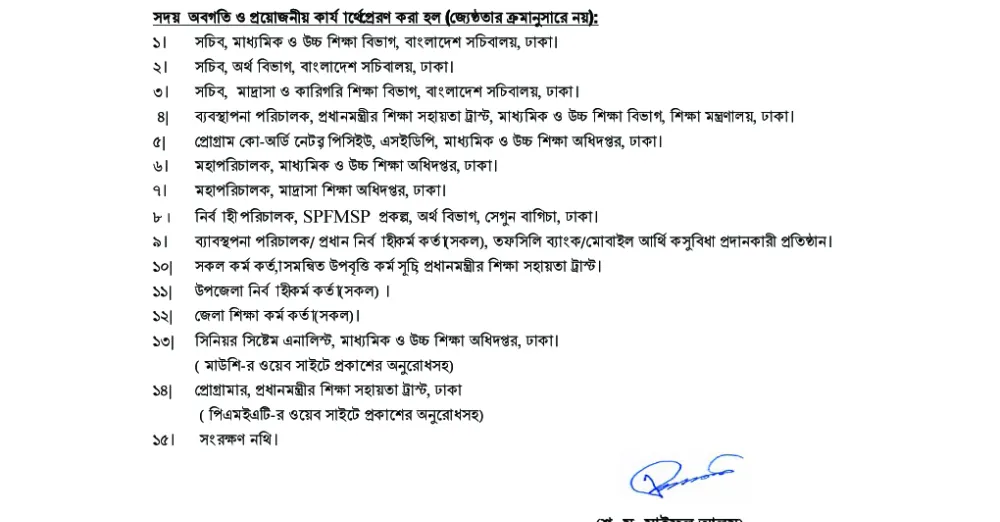 সদয় অবগতি ও প্রয়োজনীয় কার্যার্থে প্রেরণ করা হল (জ্যেষ্ঠতার ক্রমানুসারে নয়):
১। সচিব, মাধ্যমিক ও উচ্চ শিক্ষা বিভাগ, বাংলাদেশ সচিবালয়, ঢাকা।
২। সচিব, অর্থ বিভাগ, বাংলাদেশ সচিবালয়, ঢাকা।
৩। সচিব, মাদ্রাসা ও কারিগরি শিক্ষা বিভাগ, বাংলাদেশ সচিবালয়, ঢাকা।
৪| ব্যবস্থাপনা পরিচালক, প্রধানমন্ত্রীর শিক্ষা সহায়তা ট্রাস্ট, মাধ্যমিক ও উচ্চ শিক্ষা বিভাগ, শিক্ষা মন্ত্রণালয়, ঢাকা।
৫| প্রোগ্রাম কো-অর্ডিনেটর, পিসিইউ, এসইডিপি, মাধ্যমিক ও উচ্চ শিক্ষা অধিদপ্তর, ঢাকা।
৬। মহাপরিচালক, মাধ্যমিক ও উচ্চ শিক্ষা অধিদপ্তর, ঢাকা।
৭। মহাপরিচালক, মাদ্রাসা শিক্ষা অধিদপ্তর, ঢাকা।
৮। নির্বাহী পরিচালক, SPFMSP প্রকল্প, অর্থ বিভাগ, সেগুন বাগিচা, ঢাকা।
৯। ব্যাবস্থপনা পরিচালক/ প্রধান নির্বাহী কর্মকর্তা (সকল), তফসিলি ব্যাংক/মোবাইল আর্থিক সুবিধা প্রদানকারী প্রতিষ্ঠান।
১০| সকল কর্মকর্তা, সমন্বিত উপবৃত্তি কর্মসূচি, প্রধানমন্ত্রীর শিক্ষা সহায়তা ট্রাস্ট।
১১| উপজেলা নির্বাহী কর্মকর্তা (সকল) ।
১২| জেলা শিক্ষা কর্মকর্তা (সকল)।
১৩| সিনিয়র সিষ্টেম এনালিস্ট, মাধ্যমিক ও উচ্চ শিক্ষা অধিদপ্তর, ঢাকা।
( মাউশি-র ওয়েব সাইটে প্রকাশের অনুরোধসহ)
১৪| প্রোগ্রামার, প্রধানমন্ত্রীর শিক্ষা সহায়তা ট্রাস্ট, ঢাকা
( পিএমইএটি-র ওয়েব সাইটে প্রকাশের অনুরোধসহ)
১৫। সংরক্ষণ নথি।